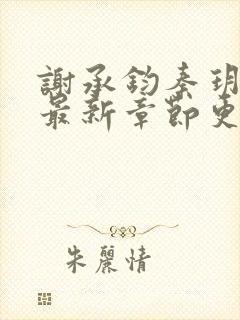 謝承鈞秦玥
最新章節更
朱麗情